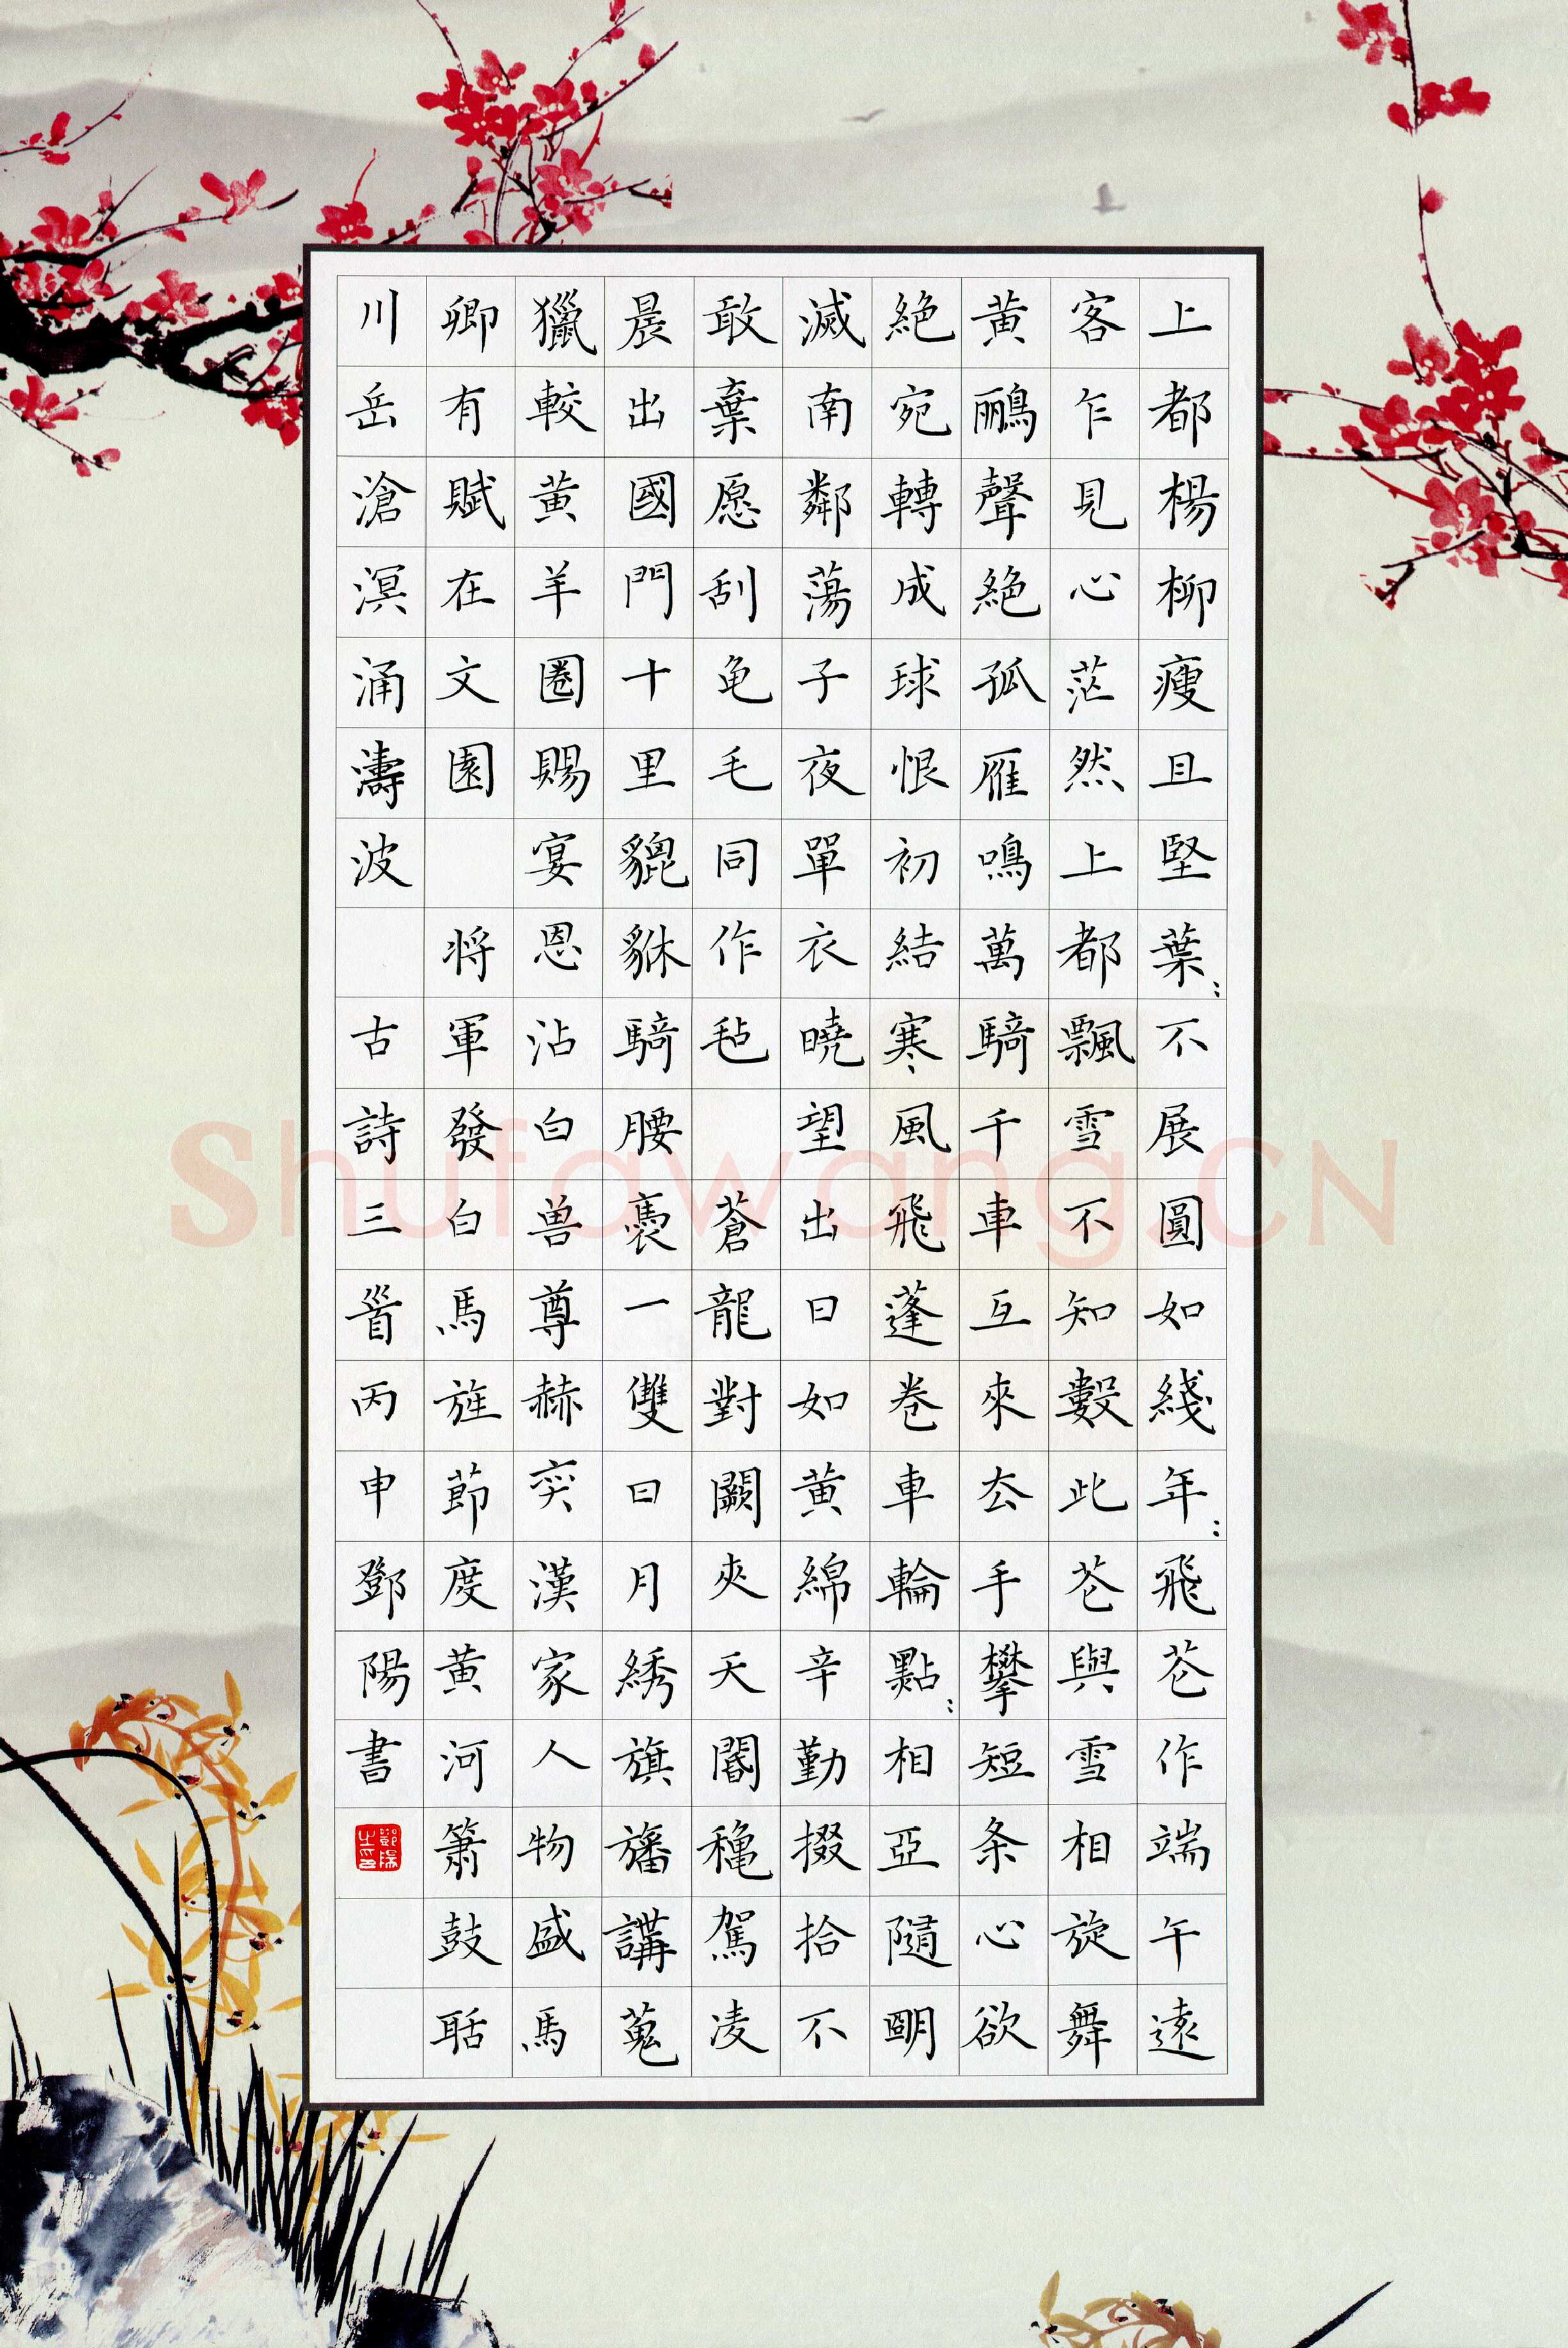 上都楊柳瘦且堅葉〻不展圓如綫年〻飛花作端午遠
客乍見心茫然上都飄雪不知數此花與雪相旋舞
黃鸝聲絕孤雁鳴萬騎千車互來去手攀短条心欲
絕宛轉成球恨初結寒風飛蓬卷車輪點〻相亞隨明
滅南鄰蕩子夜單衣曉望出日如黃綿辛勤掇拾不
敢棄愿刮龟毛同作毡 蒼龍對闕夾天閽穐駕凌
晨出國門十里貔貅騎腰褭一雙日月綉旗旛講蒐
獵較黃羊圈賜宴恩沾白兽尊赫奕漢家人物盛馬
卿有賦在文園 将軍發白馬旌節度黃河簫鼓聒
川岳滄溟涌濤波 古詩三首丙申鄧陽書
Shufawang.CN